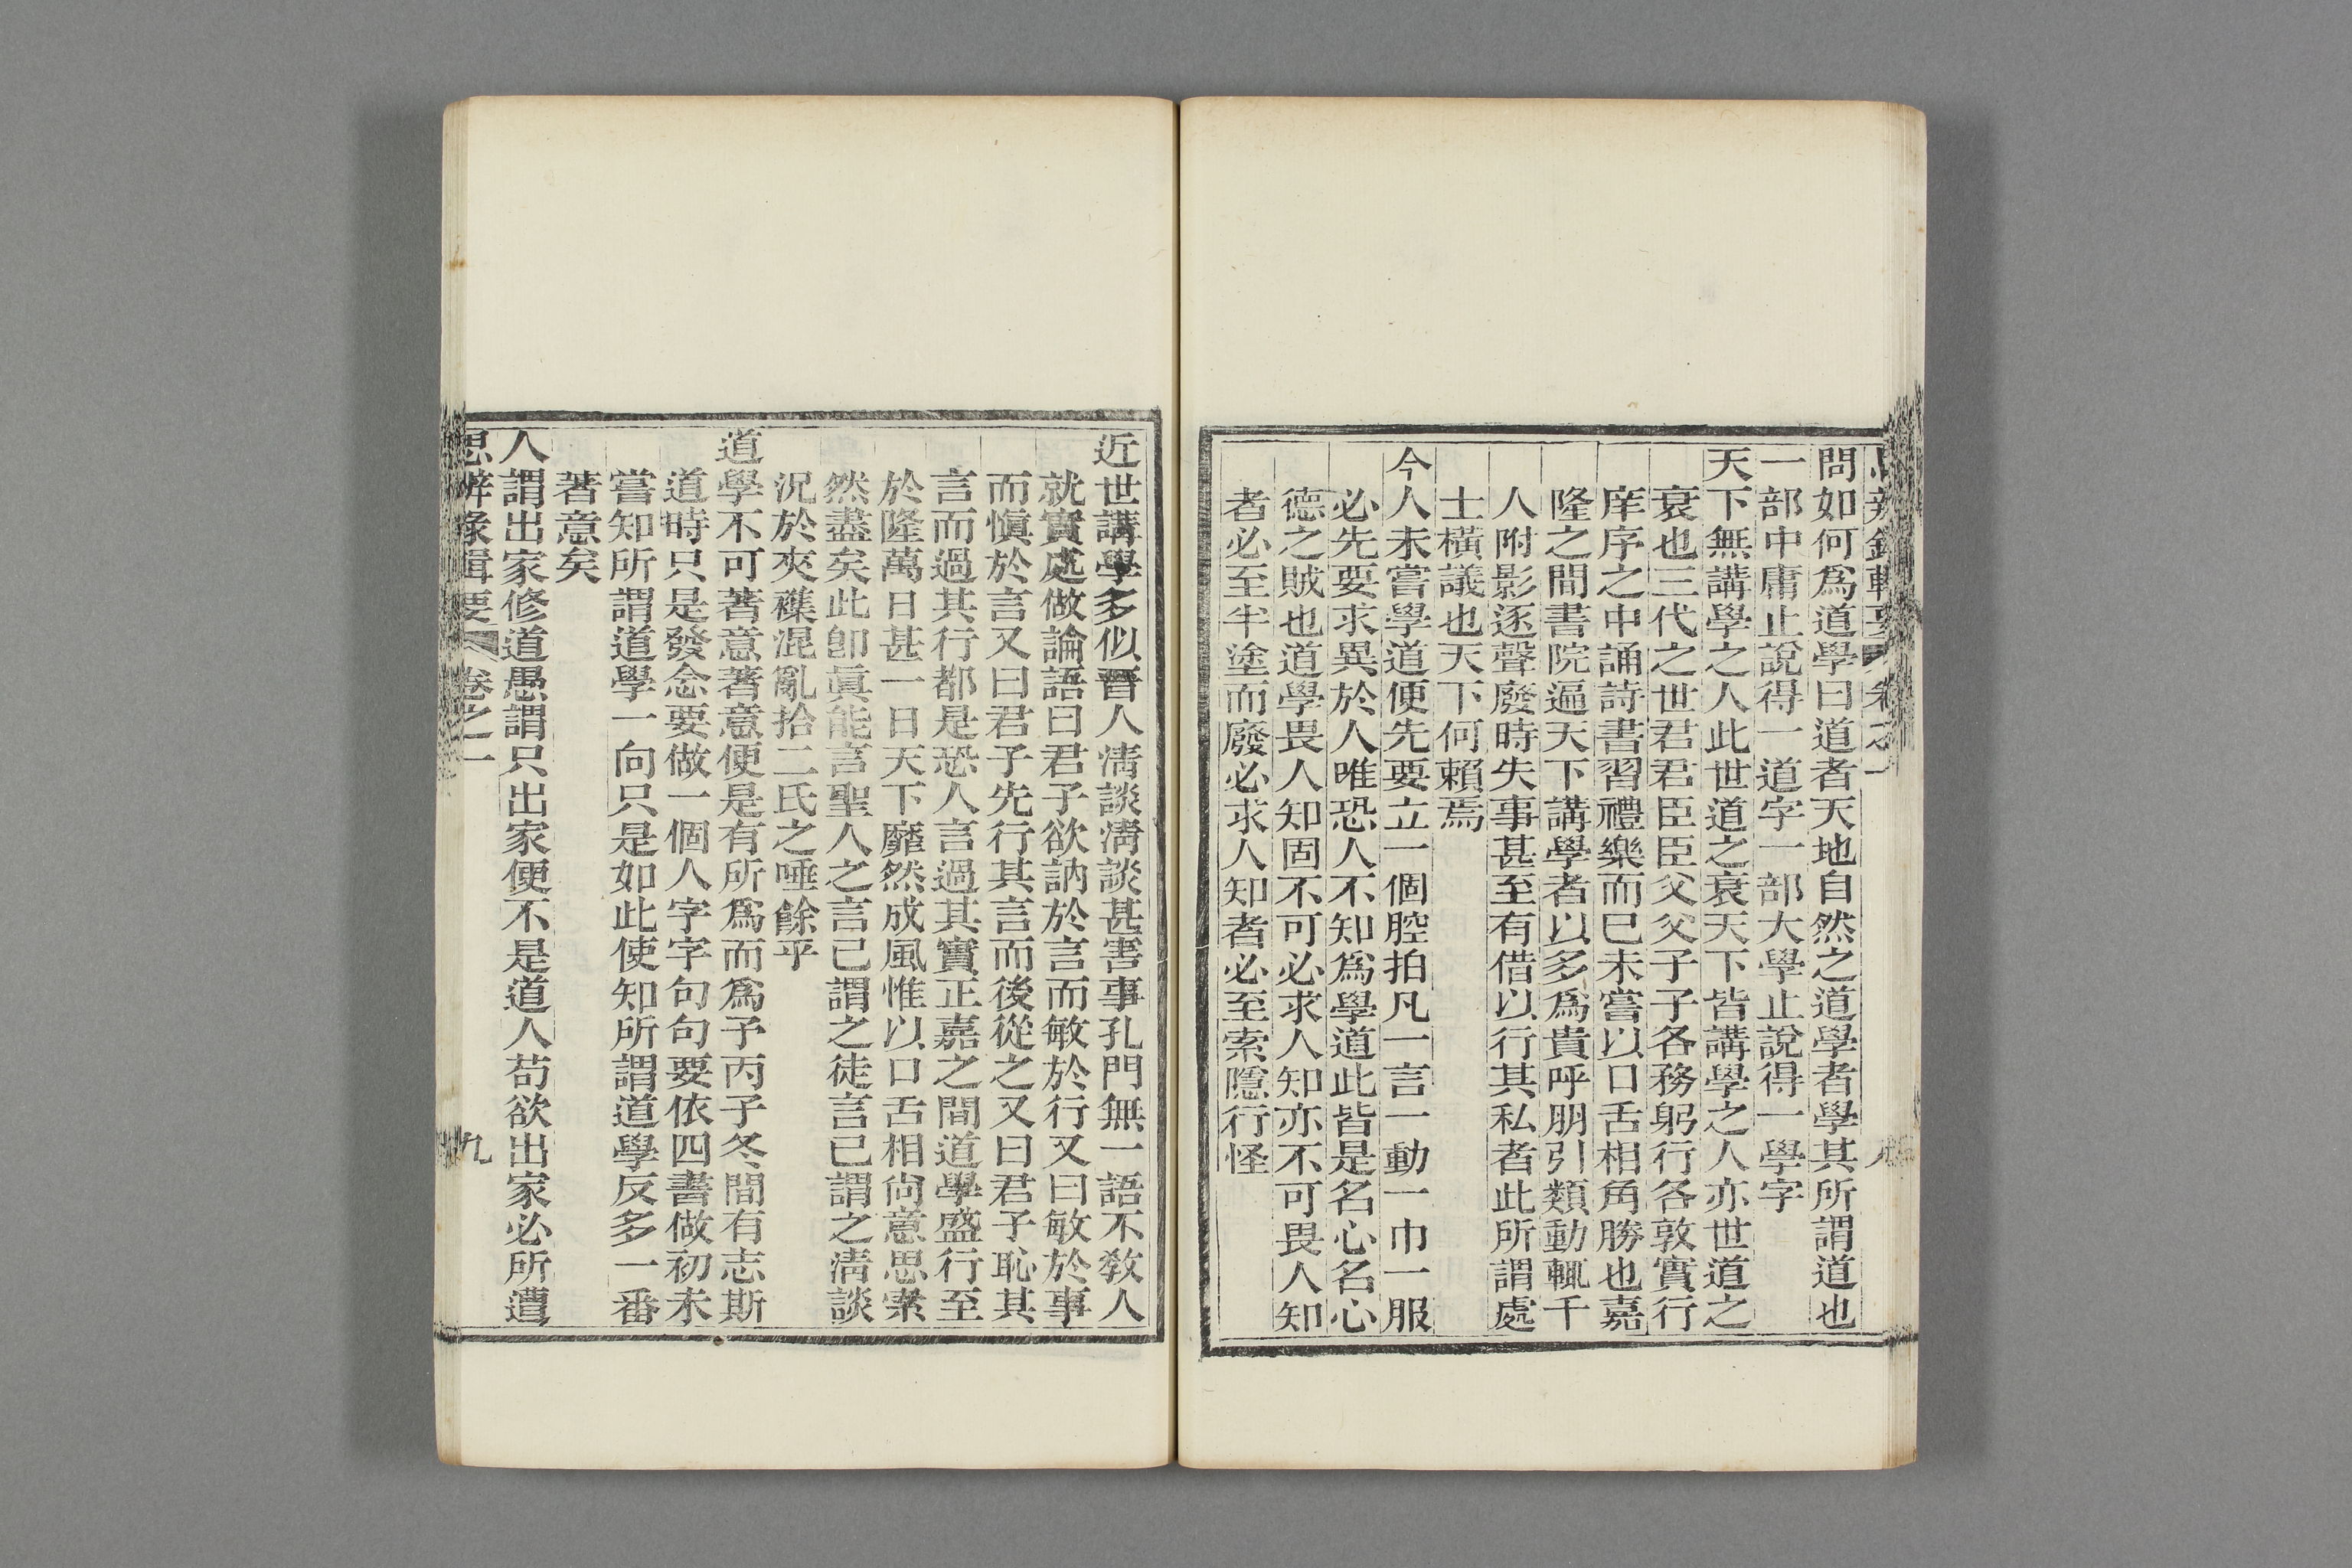 問如何爲道學曰道者天地自然之道學者學其所謂道也
一部中庸止說得一道字一部大學止說得一學字
天下無講學之人此世道之衰天下皆講學之人亦世道之
衰也三代之世君君臣臣父父子子各務躬行各敦實行
庠序之中誦詩書習禮樂而已未嘗以口舌相角勝也嘉
隆之間書院遍天下講學者以多爲貴呼朋引類動輒千
人附影逐聲廢時失事甚至有借以行其私者此所謂處
士橫議也天下何賴焉
今人未嘗學道便先要立一個腔拍凡一言一動一巾一服
必先要求異於人唯恐人不知爲學道此皆是名心名心
德之賊也道學畏人知固不可必求人知亦不可畏人知
者必至半塗而廢必求人知者必至索隱行怪
近世講學多似晉人淸談淸談甚害事孔門無一語不敎人
就實處做論語曰君子欲訥於言而敏於行又曰敏於事
而愼於言又曰君子先行其言而後從之又曰君子恥其
言而過其行都是恐人言過其實正嘉之間道學盛行至
於隆萬日甚一日天下靡然成風惟以口舌相尙意思索
然盡矣此卽眞能言聖人之言已謂之徒言已謂之淸談
況於夾襍混亂拾二氏之唾餘乎
道學不可著意著意便是有所爲而爲予丙子冬間有志斯
道時只是發念要做一個人字字句句要依四書做初未
嘗知所謂道學一向只是如此使知所謂道學反多一番
著意矣
人謂出家修道愚謂只出家便不是道人苟欲出家必所遭
思辨錄輯要 卷之一 九